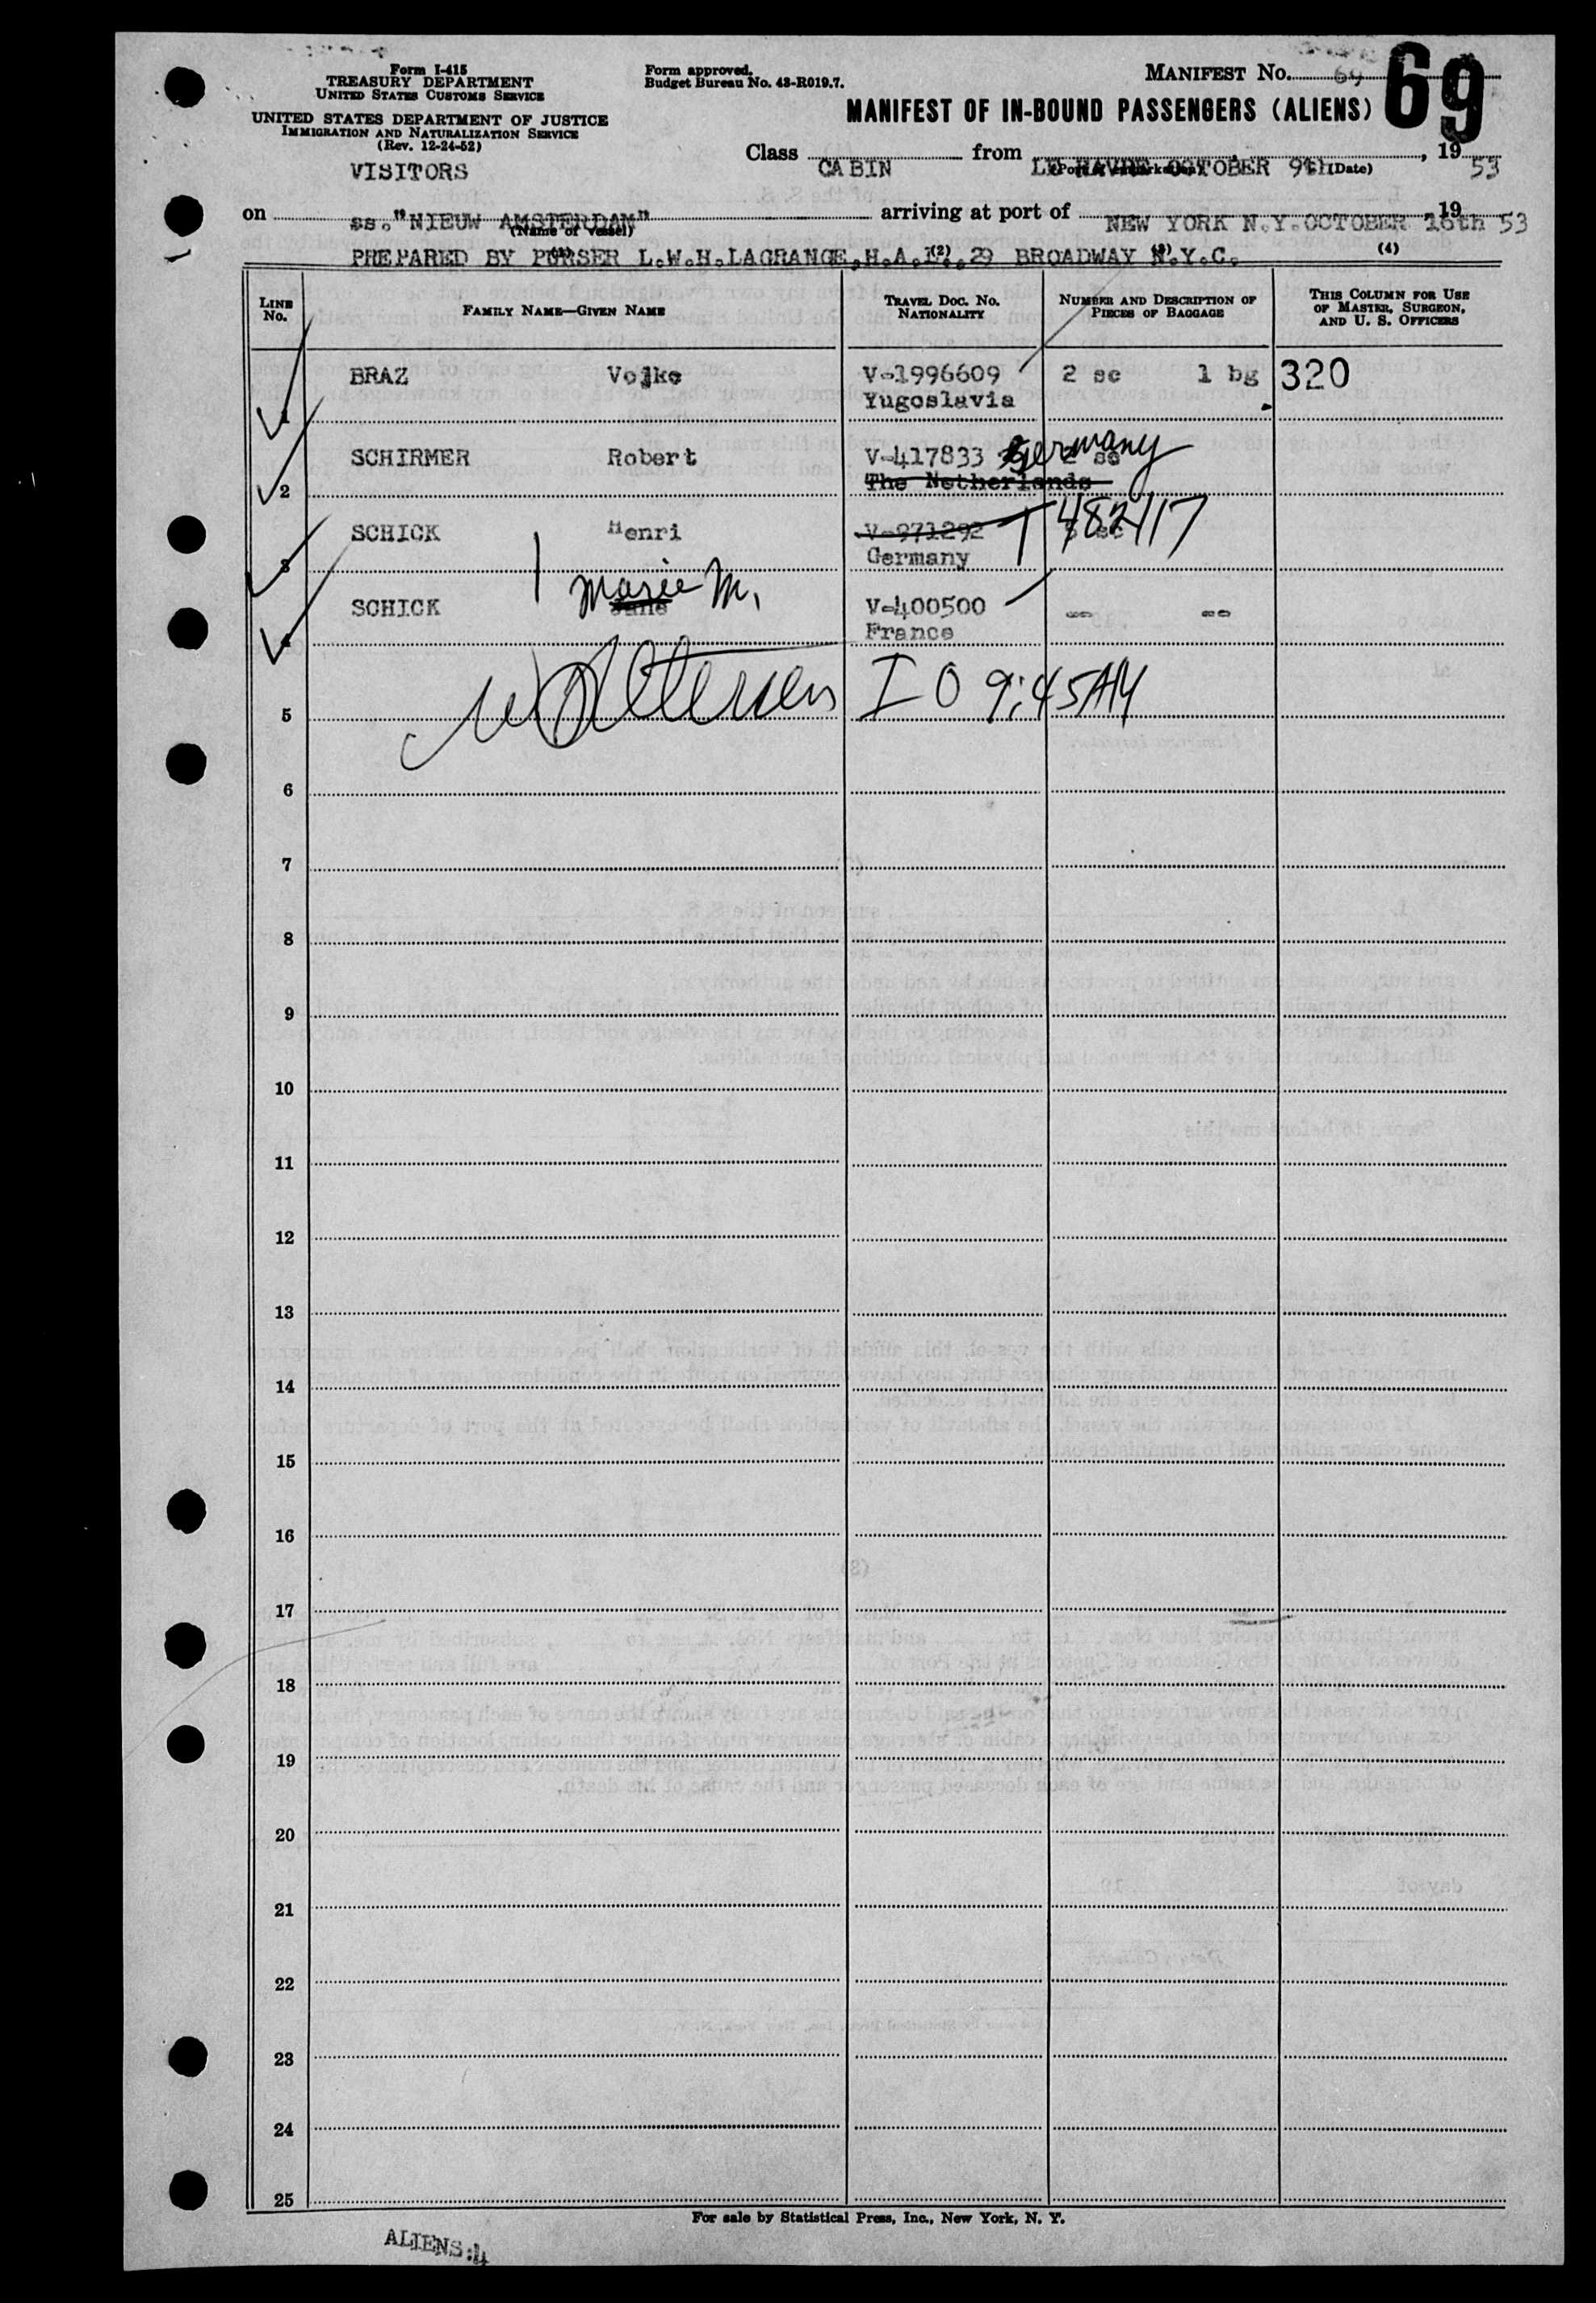 Form I-415
TREASURY DEPARTMENT
UNITED STATES CUSTOMS SERVICE
UNITED STATES DEPARTMENT OF JUSTICE
IMMIGRATION AND NATURALIZATION SERVICE
(Rev. 12-24-52)
VISITORS
Form approved.
Budget Bureau No. 43-R019.7.
MANIFEST NO. 69
69
MANIFEST OF IN-BOUND PASSENGERS (ALIENS)
Class CABIN from LE HAVRE OCTOBER 9th (Date), 19 53
on ss. "NIEUW AMSTERDAM" arriving at port of NEW YORK N.Y. OCTOBER 16th 19 53
(Name of Vessel)
PREPARED BY PURSER L.W.H. LAGRANGE, H.A.L. 29 BROADWAY N.Y.C.
(1) (2) (3) (4)
LINE NO. FAMILY NAME—GIVEN NAME TRAVEL DOC. NO. NATIONALITY NUMBER AND DESCRIPTION OF PIECES OF BAGGAGE THIS COLUMN FOR USE OF MASTER, SURGEON, AND U. S. OFFICERS
1 BRAZ Vojko V-1996609 2 sc 1 bg 320
Yugoslavia
2 SCHIRMER Robert V-417833 Germany 2 sc
The Netherlands
3 SCHICK Henri V-971292 482117
Germany
4 SCHICK Jane Marie M. V-400500 -- --
France
5 I O 9:45AM
6
7
8
9
10
11
12
13
14
15
16
17
18
19
20
21
22
23
24
25
For sale by Statistical Press, Inc., New York, N. Y.
ALIENS:4